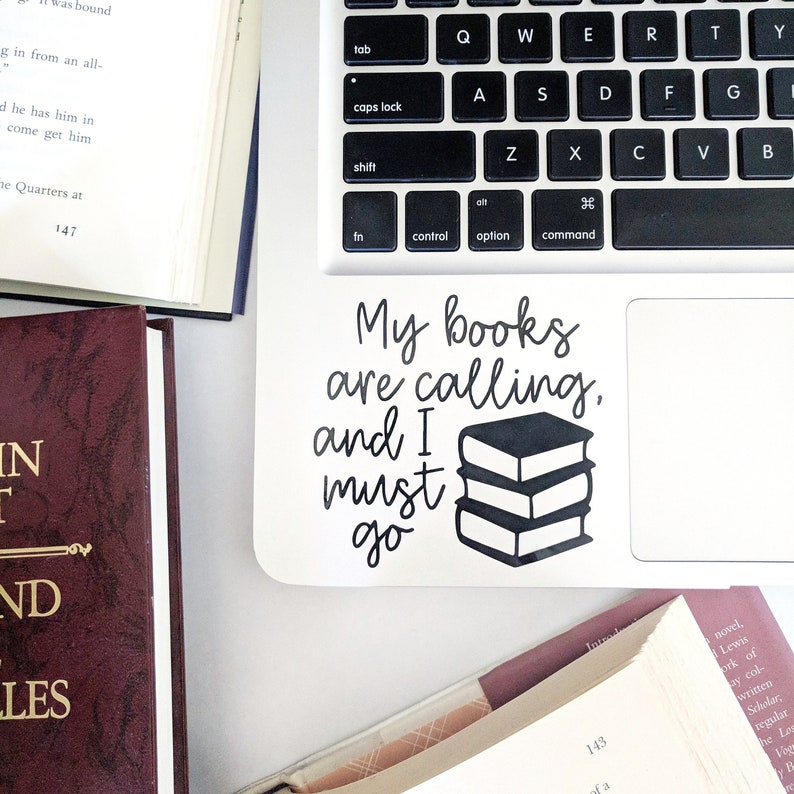 It was bound
ng in from an all-
”
d he has him in
come get him
he Quarters at
147
Q W E R T Y
tab
A S D F G
caps lock
Z X C V B
shift
fn control alt option ⌘ command
My books
are calling,
and I
must
go
IN
T
ND
LLES
Introduc
a novel,
d Lewis
ork of
ay col-
written
Scholar;
regular
the Los
Vogu
y B
143
of a